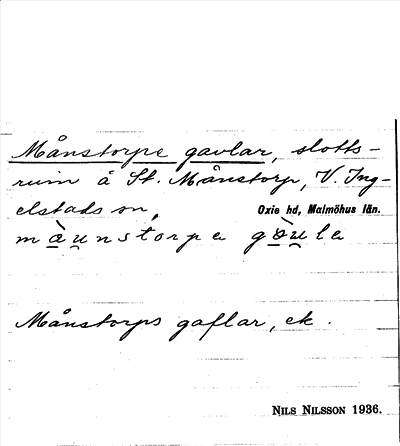 Månstorps gavlar, slotts-
ruin å St. Månstorp, V. Ing-
elstads sn,
Oxie hd, Malmöhus län.
Månstorps gaflar, ek.
NILS NILSSON 1936.